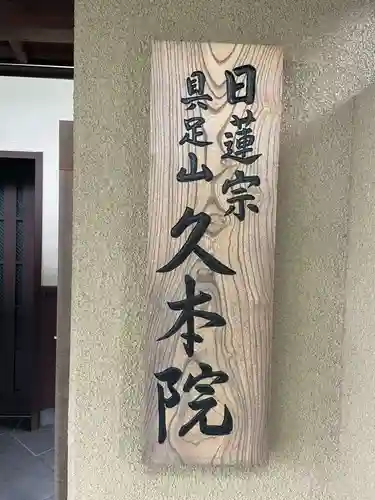 日蓮宗
具足山
久本院